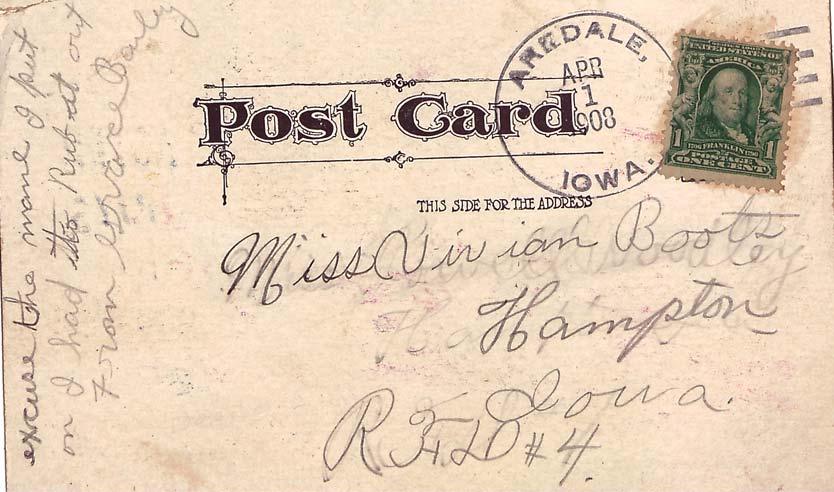 excuse the mane I put
on I had to Rub it out
From Grace Barly
Post Card
THIS SIDE FOR THE ADDRESS
AREDALE,
APR
1
1908
IOWA.
UNITED STATES OF
AMERICA
1706 FRANKLIN 1790
POSTAGE
1 ONE CENT 1
Miss Vivian Boots
Hampton
Iowa.
R.F.D #4.